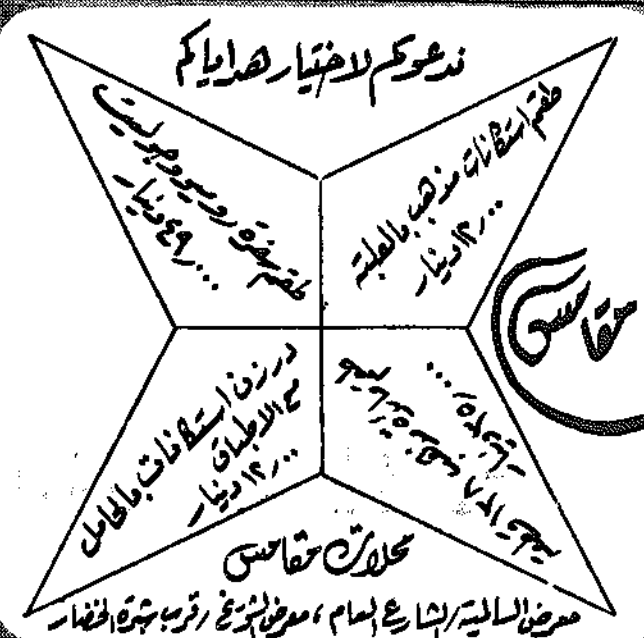 ندعوكم لاختيار هداياكم
طقم استكانات مذهب بالعلبة
١٢٫٠٠ دينار
طقم سفرة روميو وجوليت
٤٩٫٠٠٠ دينار
مقامس
درزن استكانات بالحامل
مع الأطباق
١٢٫٠٠ دينار
محلات مقامس
معرض السالمية / الشارع العام ، معرض الشويخ / قرب شبرة الخضار